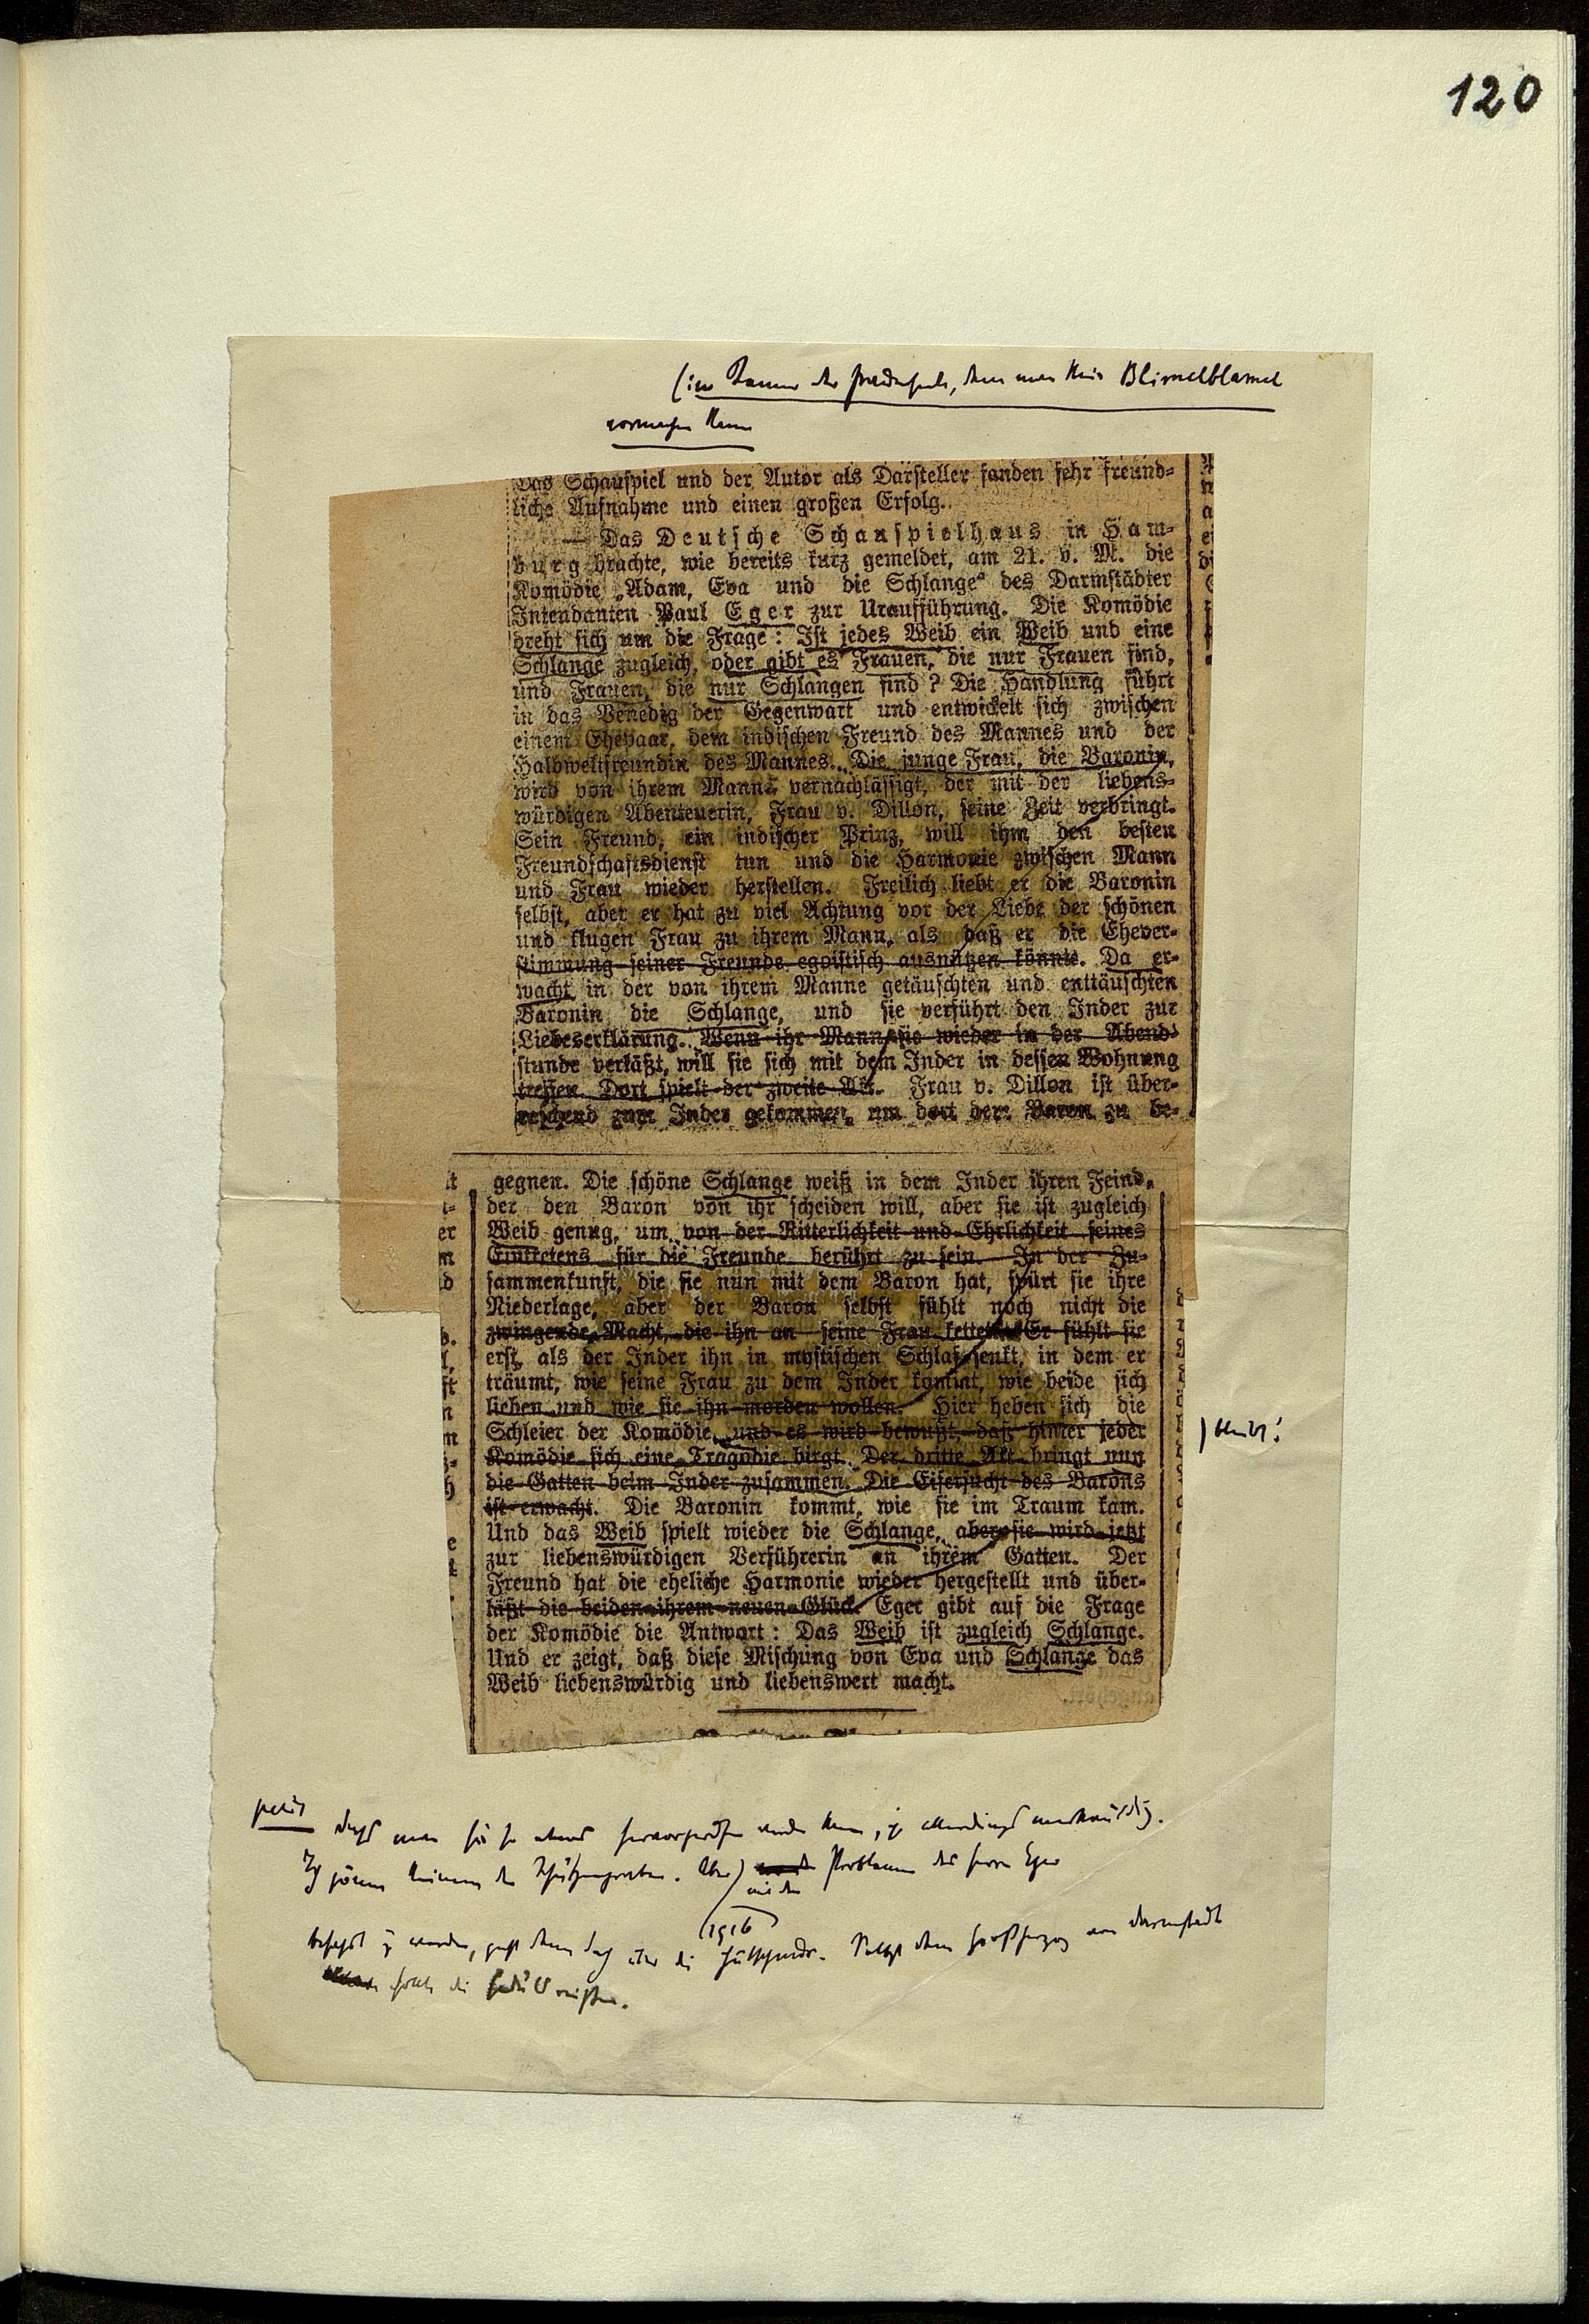 120
Blimelblamel
Das Schauspiel und der Autor als Darsteller fanden sehr freund-
liche Aufnahme und einen großen Erfolg.
— Das Deutsche Schauspielhaus in Ham-
burg brachte, wie bereits kurz gemeldet, am 21. v. M. die
Komödie „Adam, Eva und die Schlange“ des Darmstädter
Intendanten Paul Eger zur Uraufführung. Die Komödie
dreht sich um die Frage: Ist jedes Weib ein Weib und eine
Schlange zugleich, oder gibt es Frauen, die nur Frauen sind,
und Frauen, die nur Schlangen sind? Die Handlung führt
in das Venedig der Gegenwart und entwickelt sich zwischen
einem Ehepaar, dem indischen Freund des Mannes und der
Halbweltfreundin des Mannes. Die junge Frau, die Baronin,
wird von ihrem Manne vernachlässigt, der mit der liebens-
würdigen Abenteuerin, Frau v. Dillon, seine Zeit verbringt.
Sein Freund, ein indischer Prinz, will ihm den besten
Freundschaftsdienst tun und die Harmonie zwischen Mann
und Frau wieder herstellen. Freilich liebt er die Baronin
selbst, aber er hat zu viel Achtung vor der Liebe der schönen
und klugen Frau zu ihrem Mann, als daß er die Ehever-
stimmung seiner Freunde egoistisch ausnützen könnte. Da er-
wacht in der von ihrem Manne getäuschten und enttäuschten
Baronin die Schlange, und sie verführt den Inder zur
Liebeserklärung. Wenn ihr Mann sie wieder in der Abend-
stunde verläßt, will sie sich mit dem Inder in dessen Wohnung
treffen. Dort spielt der zweite Akt. Frau v. Dillon ist über-
raschend zum Inder gekommen, um dort dem Baron zu be-
gegnen. Die schöne Schlange weiß in dem Inder ihren Feind,
der den Baron von ihr scheiden will, aber sie ist zugleich
Weib genug, um von der Ritterlichkeit und Ehrlichkeit seines
Eintretens für die Freunde berührt zu sein. In der Zu-
sammenkunft, die sie nun mit dem Baron hat, spürt sie ihre
Niederlage, aber der Baron selbst fühlt noch nicht die
zwingende Macht, die ihn an seine Frau kettet. Er fühlt sie
erst, als der Inder ihn in mystischen Schlaf senkt, in dem er
träumt, wie seine Frau zu dem Inder kommt, wie beide sich
lieben und wie sie ihn morden wollen. Hier heben sich die
Schleier der Komödie, und es wird bewußt, daß hinter jeder
Komödie sich eine Tragödie birgt. Der dritte Akt bringt nun
die Gatten beim Inder zusammen. Die Eifersucht des Barons
ist erwacht. Die Baronin kommt, wie sie im Traum kam.
Und das Weib spielt wieder die Schlange, aber sie wird jetzt
zur liebenswürdigen Verführerin an ihrem Gatten. Der
Freund hat die eheliche Harmonie wieder hergestellt und über-
läßt die beiden ihrem neuen Glück. Eger gibt auf die Frage
der Komödie die Antwort: Das Weib ist zugleich Schlange.
Und er zeigt, daß diese Mischung von Eva und Schlange das
Weib liebenswürdig und liebenswert macht.
bleibt!
petit
allerdings merkwürdig.
Ich gönne keinem den Schützengraben. Aber mit den Problemen des Herrn Eger
1916
befaßt zu werden, geht denn doch über die Hutschnur. Selbst dem Großherzog von Darmstadt
sollte die Geduld reißen.